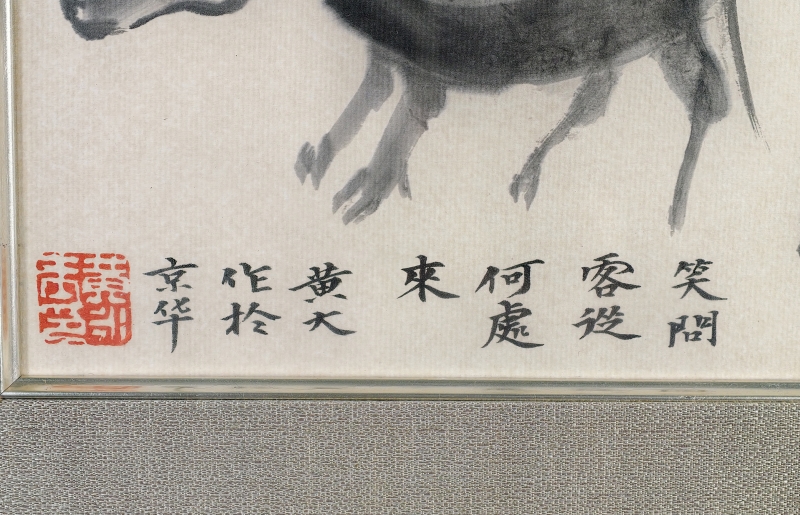 笑問
客從
何處
來
黄大
作於
京华